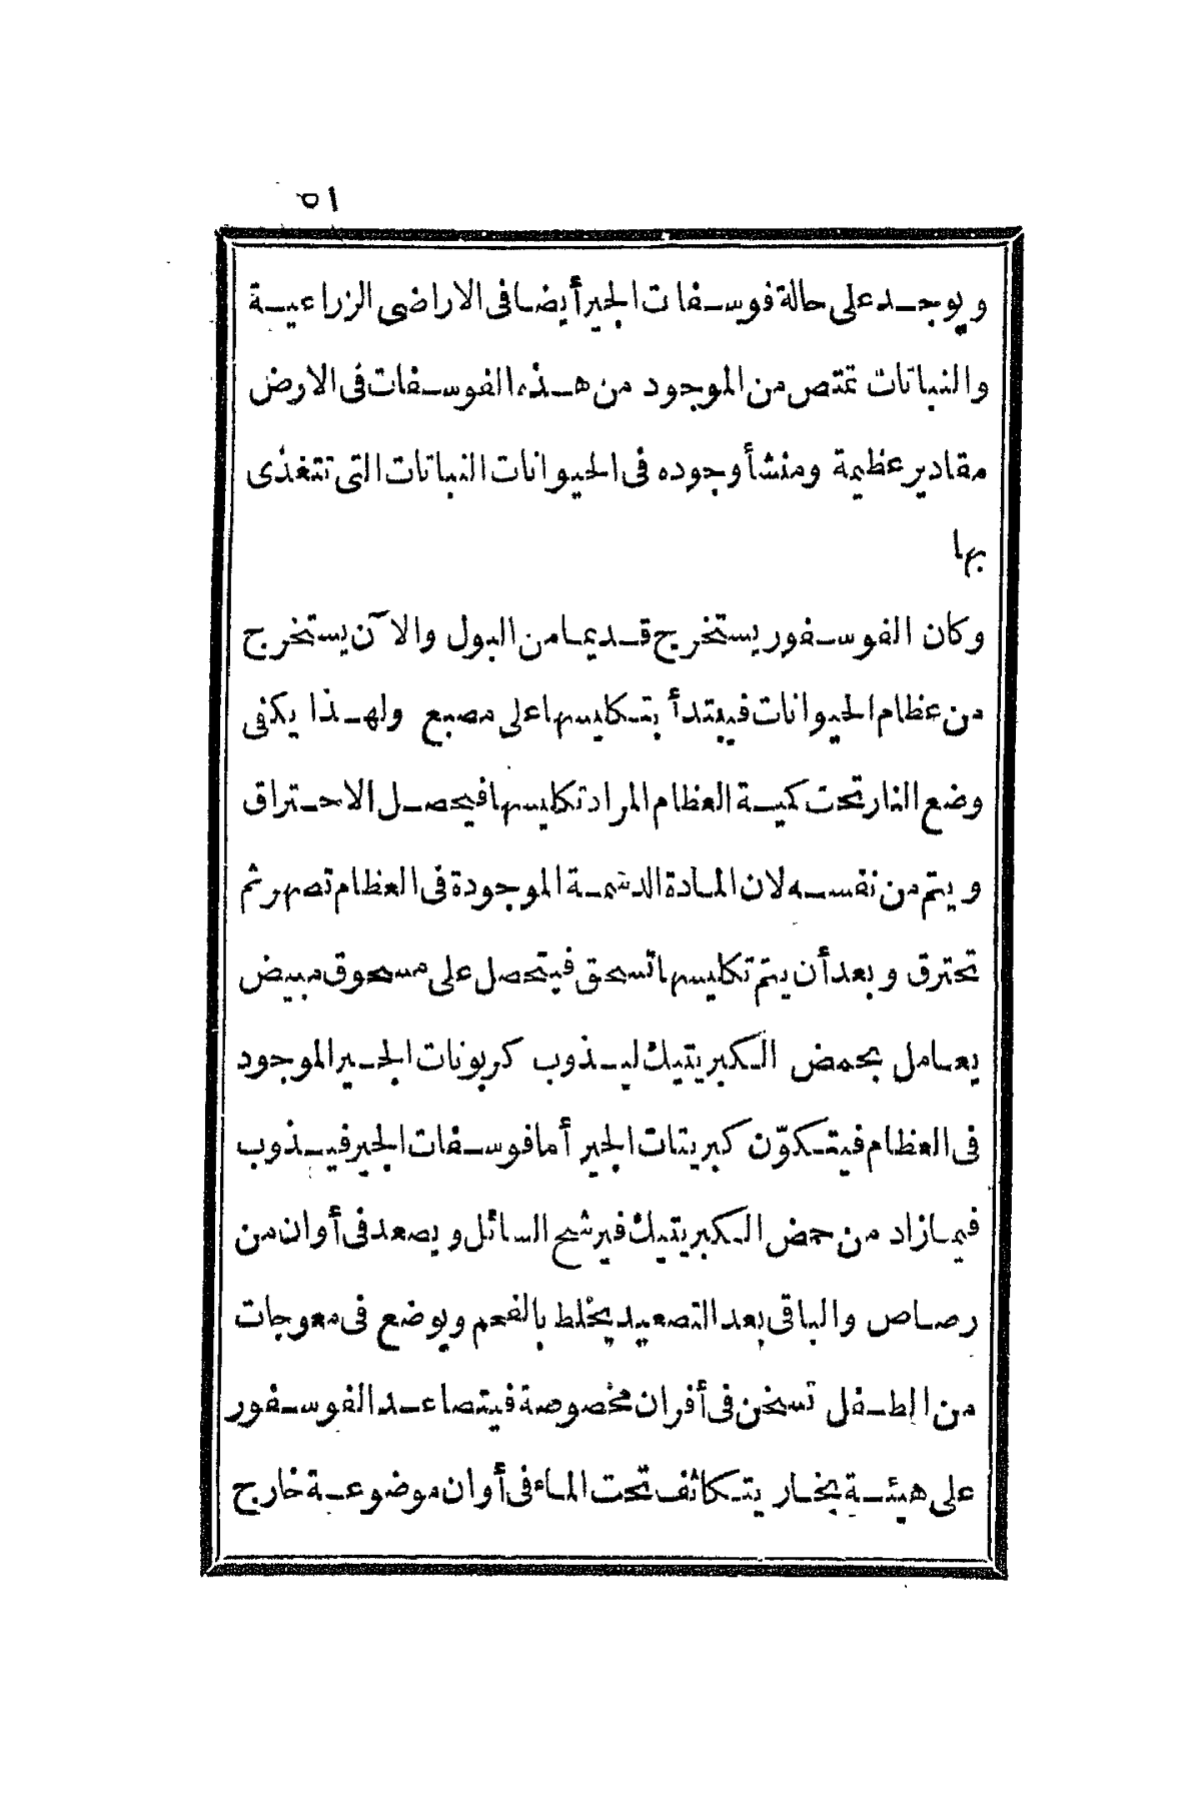 ٥١
ويوجد على حالة فوسفات الجير أيضا فى الاراضى الزراعية
والنباتات تمتص من الموجود من هذه الفوسفات فى الارض
مقادير عظيمة ومنشأ وجوده فى الحيوانات النباتات التى تتغذى
بها
وكان الفوسفور يستخرج قديما من البول والآن يستخرج
من عظام الحيوانات فيبتدأ بتكليسها على مصبع ولهذا يكفى
وضع النار تحت كمية العظام المراد تكليسها فيحصل الاحتراق
ويتم من نفسه لان المادة الدشمة الموجودة فى العظام تصهر ثم
تحترق وبعد أن يتم تكليسها تسحق فيتحصل على مسحوق مبيض
يعامل بحمض الكبريتيك ليذوب كربونات الجير الموجود
فى العظام فيتكوّن كبريتات الجير أما فوسفات الجير فيذوب
فيما زاد من حمض الكبريتيك فيرشح السائل ويصعد فى أوان من
رصاص والباقى بعد التصعيد يخلط بالفحم ويوضع فى معوجات
من الطفل تسخن فى أفران مخصوصة فيتصاعد الفوسفور
على هيئة بخار يتكاثف تحت الماء فى أوان موضوعة خارج